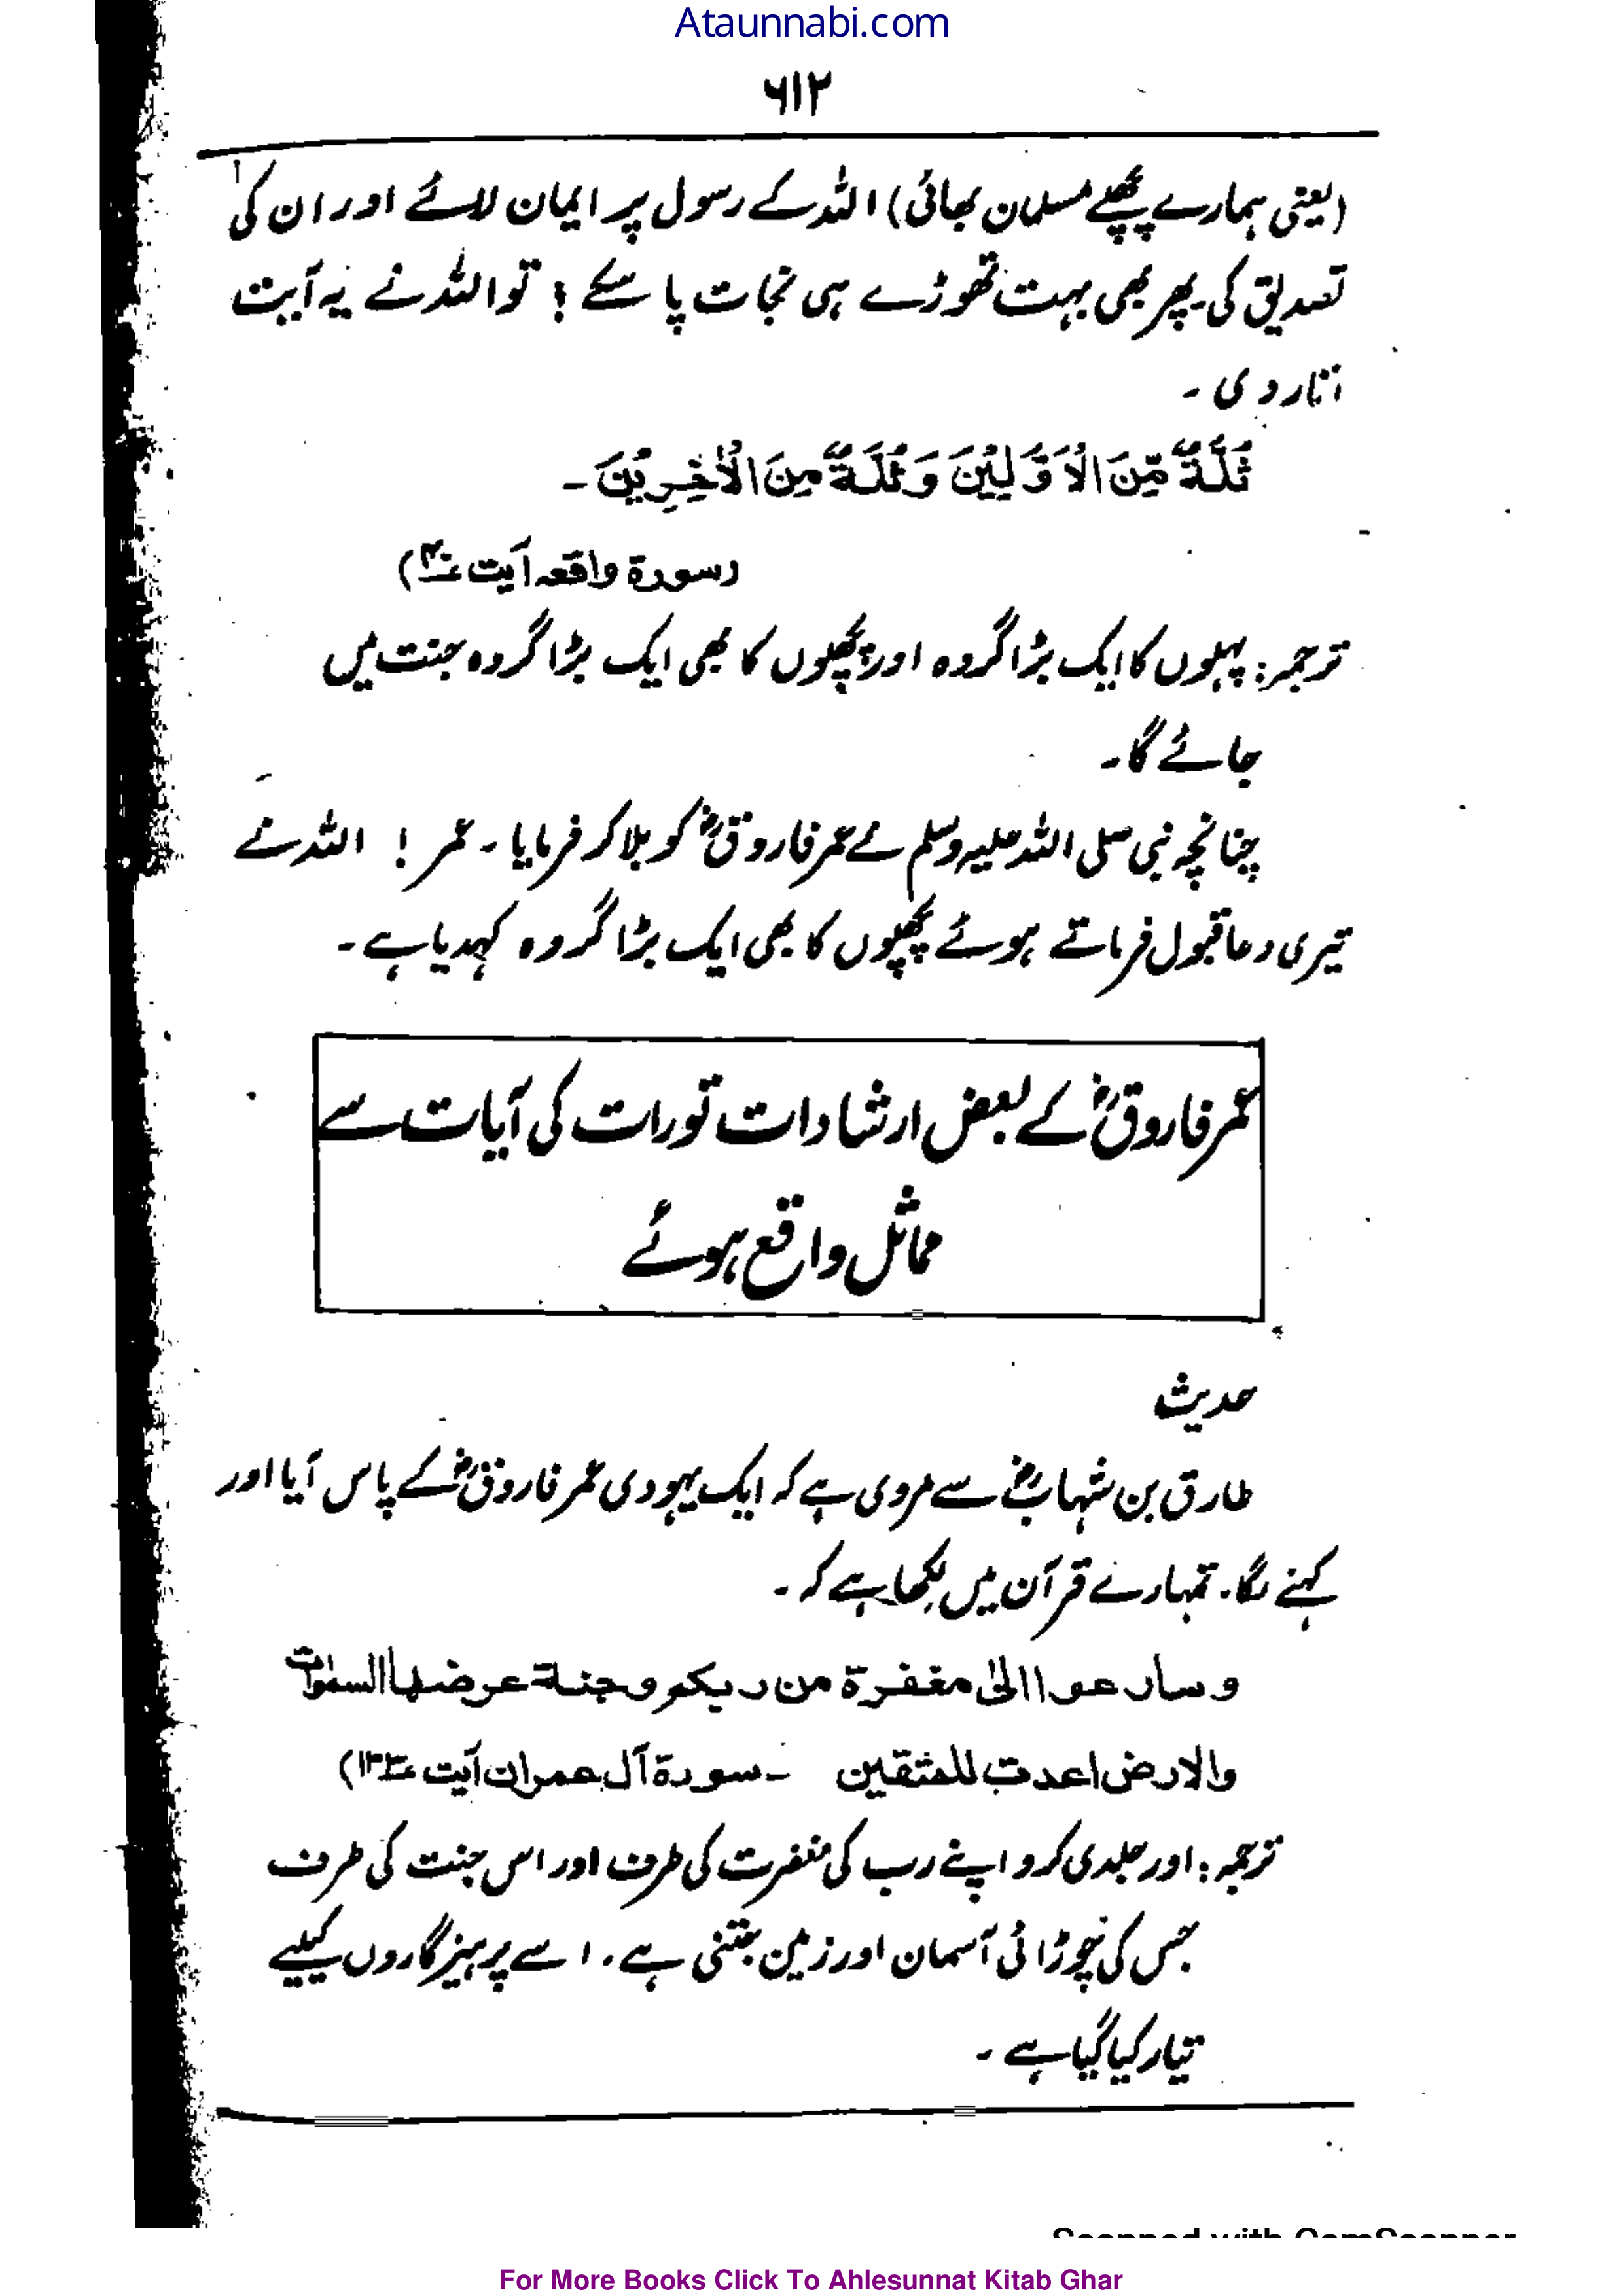 Ataunnabi.com
۶۱۲
(یعنی ہمارے پچھلے مسلمان بھائی) اللہ کے رسول پر ایمان لائے اور ان کی
تصدیق کی۔ پھر بھی بہت تھوڑے ہی نجات پا سکے؟ تو اللہ نے یہ آیت
اتار دی ۔
ثُلَّةٌ مِّنَ الْاَوَّلِيْنَ وَثُلَّةٌ مِنَ الْاٰخِرِيْنَ ۔
(سورۃ واقعہ آیت
ترجمہ: پہلوں کا ایک بڑا گروہ اور پچھلوں کا بھی ایک بڑا گروہ جنت میں
جائے گا۔
چنانچہ نبی صلی اللہ علیہ وسلم نے عمر فاروقؓ کو بلا کر فرمایا ۔ عمر! اللہ نے
تیری دعا قبول فرماتے ہوئے پچھلوں کا بھی ایک بڑا گروہ کہدیا ہے ۔
عمر فاروقؓ کے بعض ارشادات تورات کی آیات سے
مماثل واقع ہوئے
حدیث
طارق بن شہابؓ سے مروی ہے کہ ایک یہودی عمر فاروقؓ کے پاس آیا اور
کہنے لگا۔ تمہارے قرآن میں لکھا ہے کہ ۔
وسارعوا الىٰ مغفرة من ربكم وجنة عرضها السمٰوات
والارض اعدت للمتقين ۔ سورۃ آل عمران آیت ۱۳۳)
ترجمہ: اور جلدی کرو اپنے رب کی مغفرت کی طرف اور اس جنت کی طرف
جس کی چوڑائی آسمان اور زمین جتنی ہے۔ اسے پرہیزگاروں کیلیے
تیار کیا گیا ہے ۔
Scanned with CamScanner
For More Books Click To Ahlesunnat Kitab Ghar